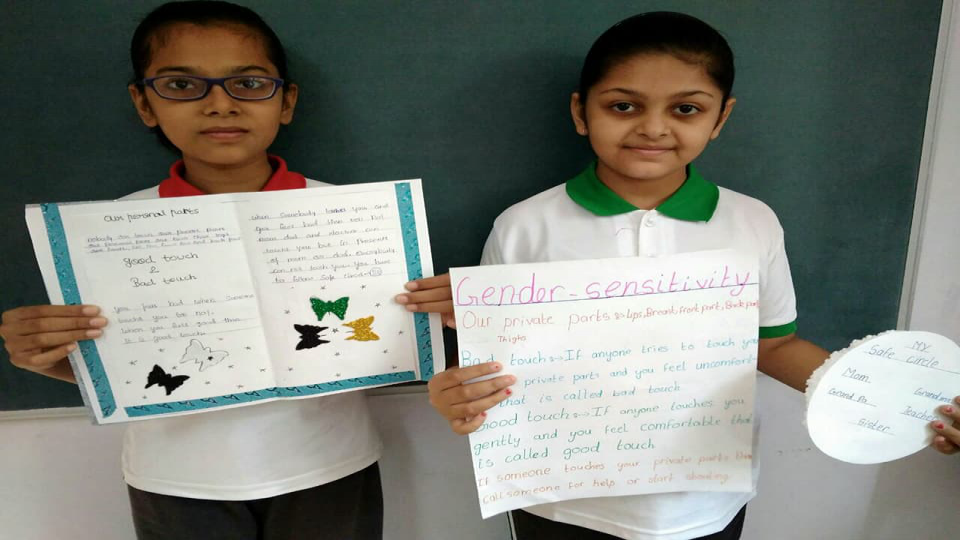 Our personal parts
good touch
&
Bad touch
You feel bad when someone
touch you be not.
When you feel good then
it is good touch
when somebody touch you and
you feel bad then say No!
mom dad and doctor can
touch you but in presence
of mom or dad. Everybody
can not touch you. You have
to know safe circle
Gender-sensitivity
Our private parts Lips, Breast, Front part, Back part,
Thighs
Bad touch If anyone tries to touch your
private parts and you feel uncomfort-
that is called bad touch
Good touch If anyone touches you
gently and you feel comfortable that
Is called good touch
If someone touches your private parts then
call someone for help or start shouting
MY
Safe Circle
Mom
Grand Pa
Teacher
Sister